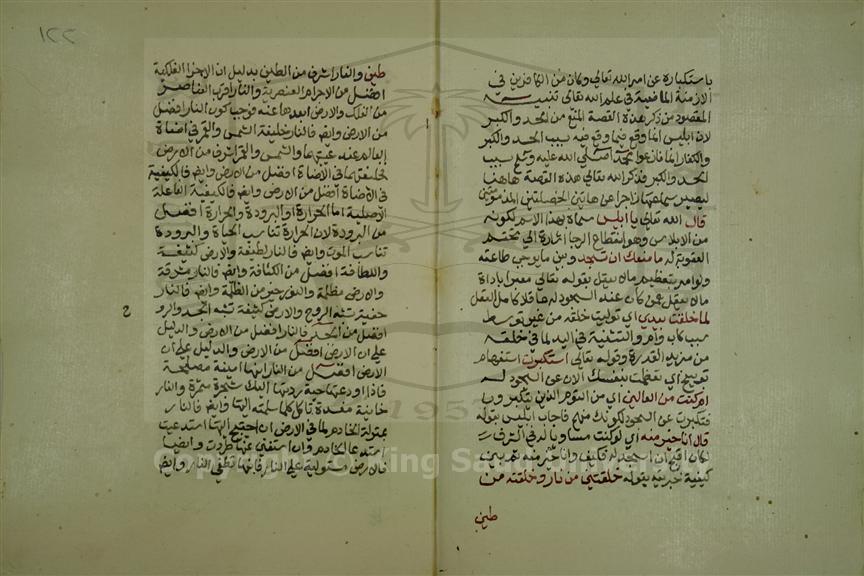 باستكباره عن امر الله تعالى وكان من الكافرين في
الازمنة الماضية في علم الله تعالى تنبيه
المقصود من ذكر هذه القصة المنع من الحسد والكبر
لان ابليس انما وقع فيما وقع فيه بسبب الحسد والكبر
والكفار انما نازعوا محمدا صلى الله عليه وسلم بسبب
الحسد والكبر فذكر الله تعالى هذه القصة هاهنا
ليصير سماعها زاجرا عن هاتين الخصلتين المذمومتين
قال الله تعالى يا ابليس سماه بهذا الاسم لكونه
من الابلاس وهو انقطاع الرجا اشارة الى تحتم
العقوبة له ما منعك ان تسجد وبين ما يوجب طاعته
ولو امر بتعظيم ما لا يعقل بقوله تعالى معبرا باداة
ما لا يعقل عمن كان عند السجود له عاقلا كامل العقل
لما خلقت بيدي اي توليت خلقه من غير توسط
سبب كاب وام والتثنية في اليد لما في خلقه
من مزيد القدرة وقوله تعالى استكبرت استفهام
توبيخ اي تعظمت بنفسك الان عن السجود له
ام كنت من العالين اي من القوم الذين يتكبرون
فتكبرت عن السجود لكونك منهم فاجاب ابليس بقوله
قال انا خير منه اي لو كنت مساويا له في الشرف
لكان يقبح ان اسجد له فكيف وانا خير منه ثم بين
كيفية خيريته بقوله خلقتني من نار وخلقته من
طين
١٢٢
طين والنار اشرف من الطين بدليل ان الاجرام الفلكية
افضل من الاجرام العنصرية والنار اقرب العناصر
من الفلك والارض ابعدها عنه فوجب كون النار افضل
من الارض وايضا فالنار خليفة الشمس والقمر في اضاة
العالم عند غيبتهما والشمس والقمر اشرف من الارض
فخليفتهما في الاضاة افضل من الارض وايضا فالكيفية
الاصلية اما الحرارة او البرودة والحرارة افضل
من البرودة لان الحرارة تناسب الحياة والبرودة
تناسب الموت وايضا فالنار لطيفة والارض كثيفة
واللطافة افضل من الكثافة وايضا فالنار مشرقة
والارض مظلمة والنور خير من الظلمة وايضا فالنار
خفيفة تشبه الروح والارض كثيفة تشبه الجسد والروح
افضل من الجسد فالنار افضل من الارض والدليل
على ان الارض افضل من النار انها امينة مصلحة
فاذا اودعتها حبة ردتها اليك شجرة مثمرة والنار
خاينة مفسدة تاكل كلما سلمته اليها وايضا فالنار
بمنزلة الخادم لما في الارض ان احتيج اليها استدعيت
استدعا الخادم وان استغني عنها طردت وايضا
فالارض مستولية على النار فانها تطفي النار وايضا
Copyright © King Saud University
1957